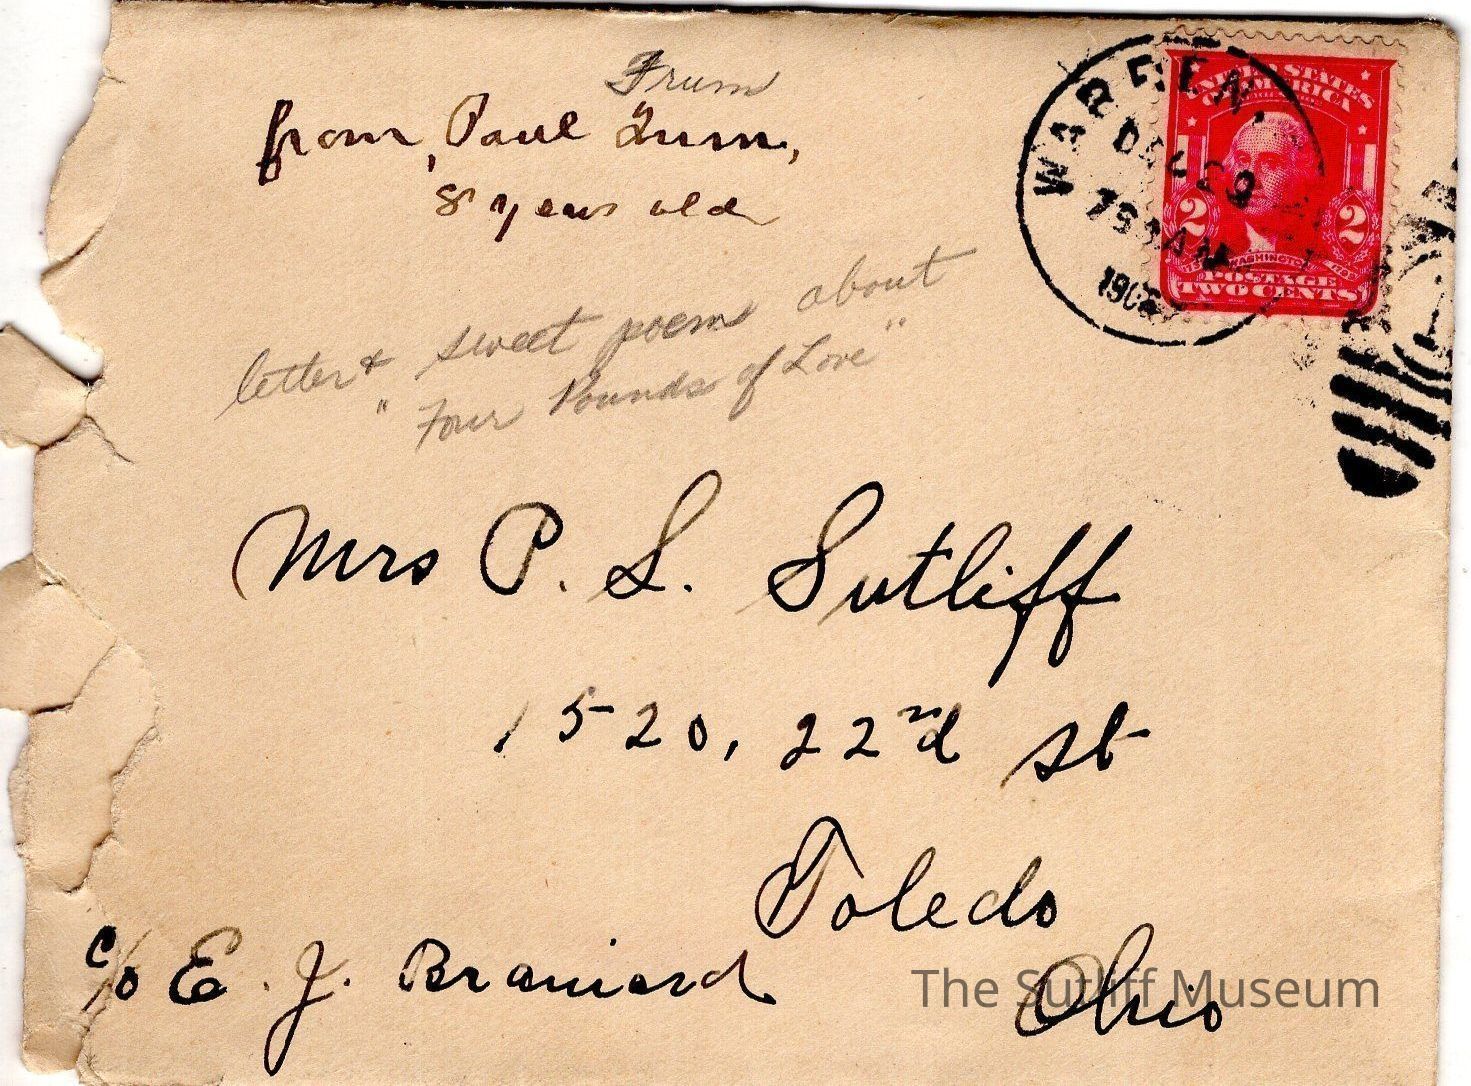 Frum
from, Paul Frum,
8 years old
letter & sweet poems about
"Four Pounds of Love"
WARREN,
DEC 29
AM
190
UNITED STATES
OF AMERICA
2 2
WASHINGTON
POSTAGE
TWO CENTS
1
Mrs P. S. Sutliff
1520, 22nd St
Toledo
Ohio
c/o E. J. Brainard
The Sutliff Museum